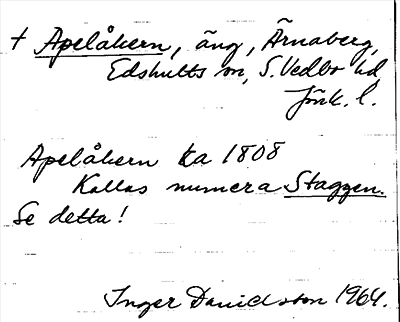 † Apelåkern, äng, Ärnaberg,
Edshults sn, S. Vedbo hd,
Jönk. l.
Apelåkern ka 1808
Kallas numera Staggen.
Se detta!
Inger Danielsson 1964.